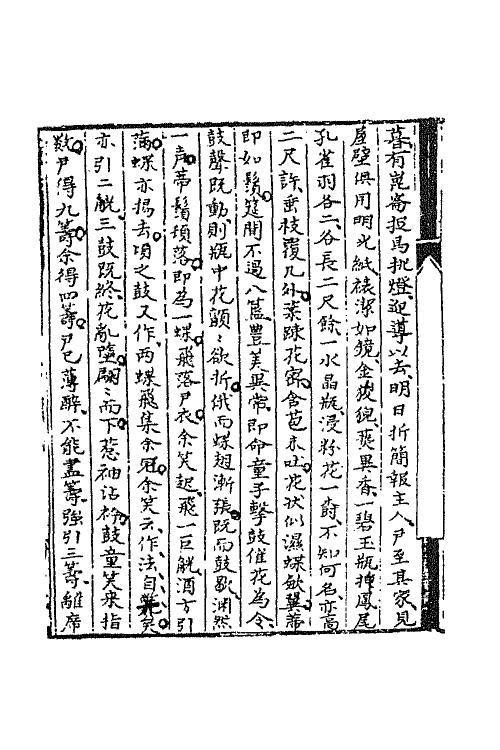 暮有崑崙捉馬挑燈迎導以去明日折簡報主人尹至其家見
屋壁俱用明光紙裱潔如鏡金狻猊爇異香一碧玉瓶揷鳳尾
孔雀羽各二各長二尺餘一水晶瓶浸粉花一樹不知何名亦高
二尺許垂枝覆几外葉踈花宻含苞未吐花狀似濕蝶斂翼蒂
即如鬚筵間不過八簋豊美異常即命童子擊鼓催花為令
鼓聲既動則瓶中花顫顫欲折俄而蝶翅漸張既而鼓歇淵然
一聲蒂鬚頓落即為一蝶飛落尹衣余笑起飛一巨觥酒方引
滿蝶亦揚去頃之鼓又作兩蝶飛集余冠余笑云作法自斃矣
亦引二觥三鼓既終花亂墮翩翩而下惹袖沾衿鼓童笑来指
數尹得九籌余得四籌尹已薄醉不能盡籌強引三籌離席